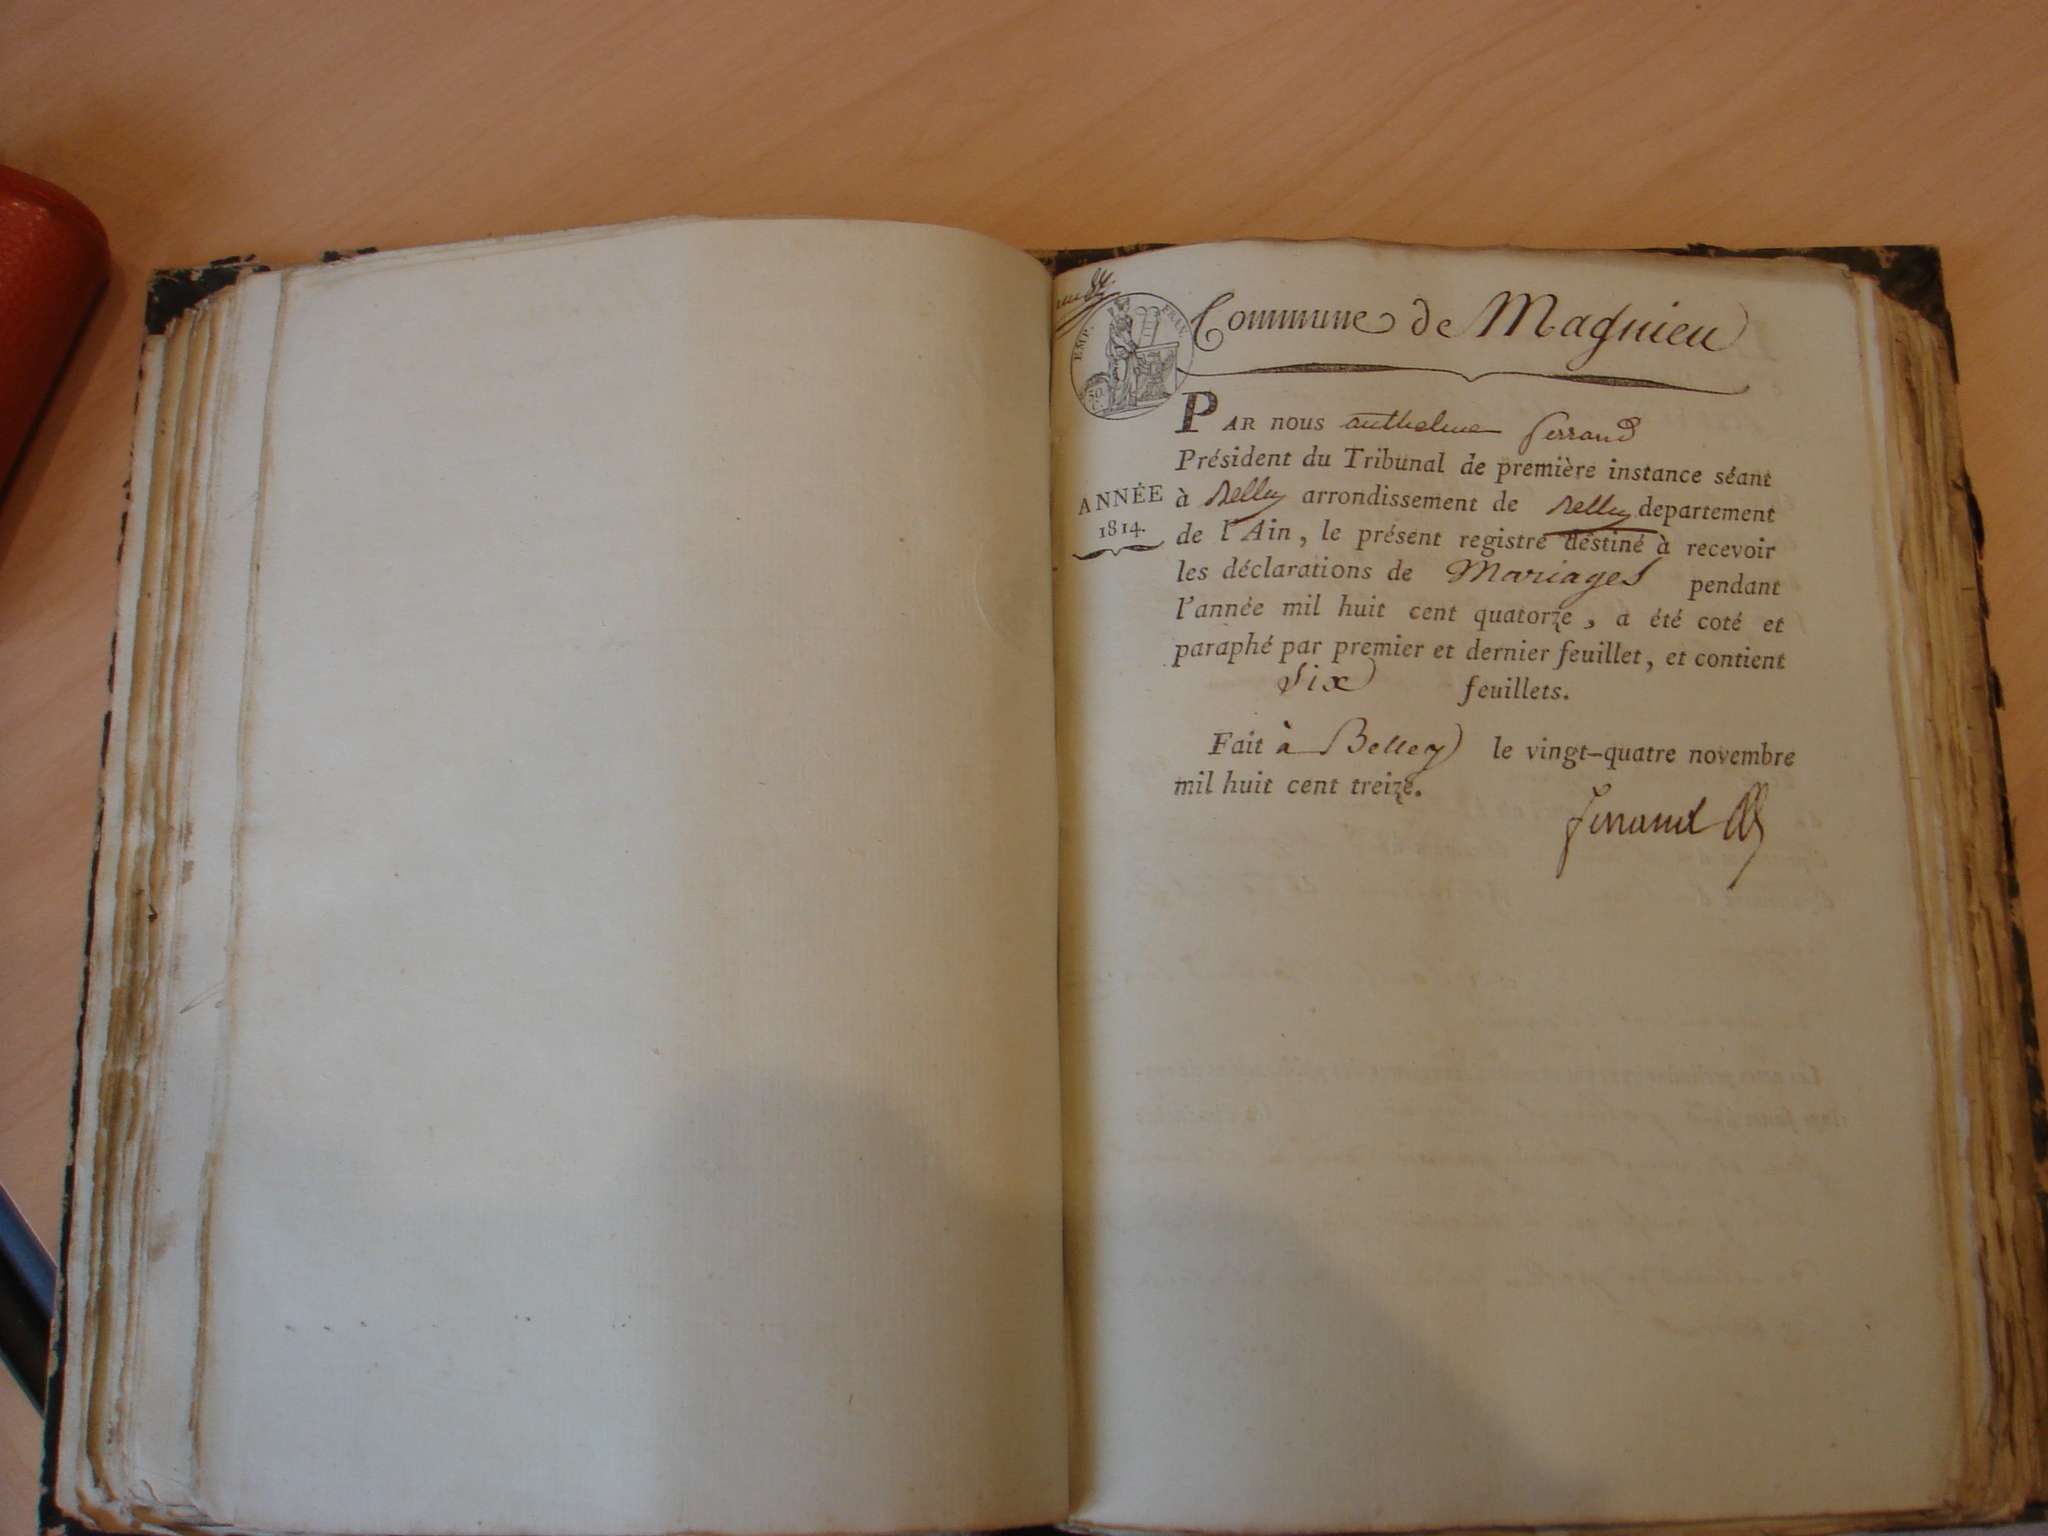 Commune de Magnieu
EMP. FRAN.
PAR NOUS anthelme ferrand
Président du Tribunal de première instance séant
ANNÉE
1814.
à Belley arrondissement de Belley departement
de l'Ain, le présent registre destiné à recevoir
les déclarations de Mariages pendant
l'année mil huit cent quatorze, a été coté et
paraphé par premier et dernier feuillet, et contient
Six feuillets.
Fait à Belley le vingt-quatre novembre
mil huit cent treize.
ferrand